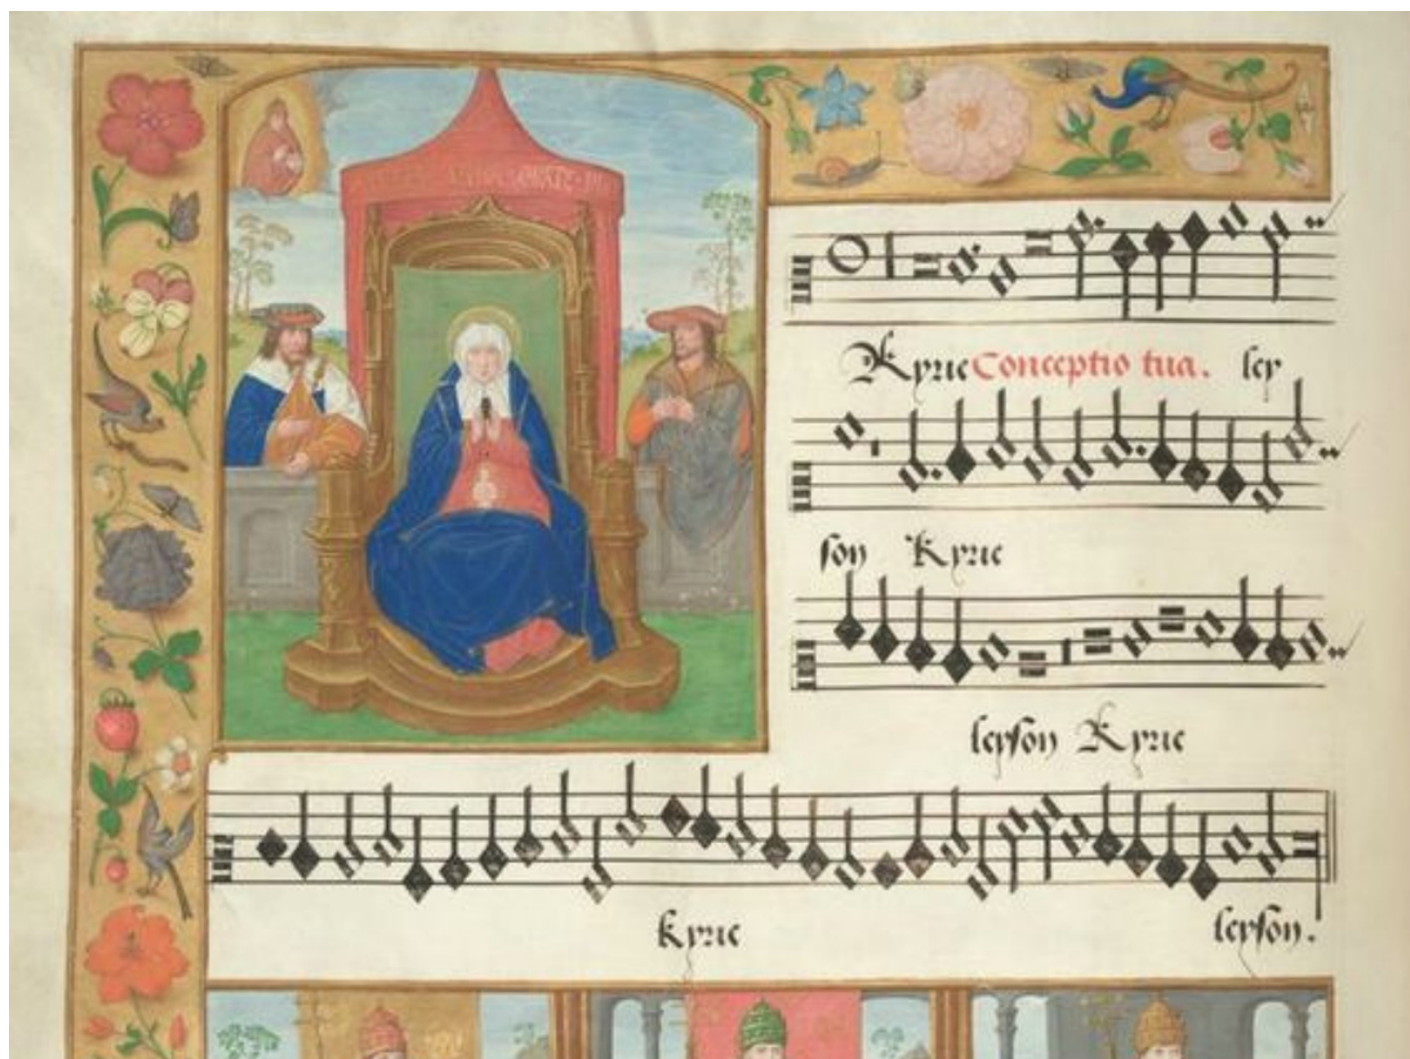 Kyrie Conceptio tua. ley
son Kyrie
leyson Kyrie
kyrie leyson.